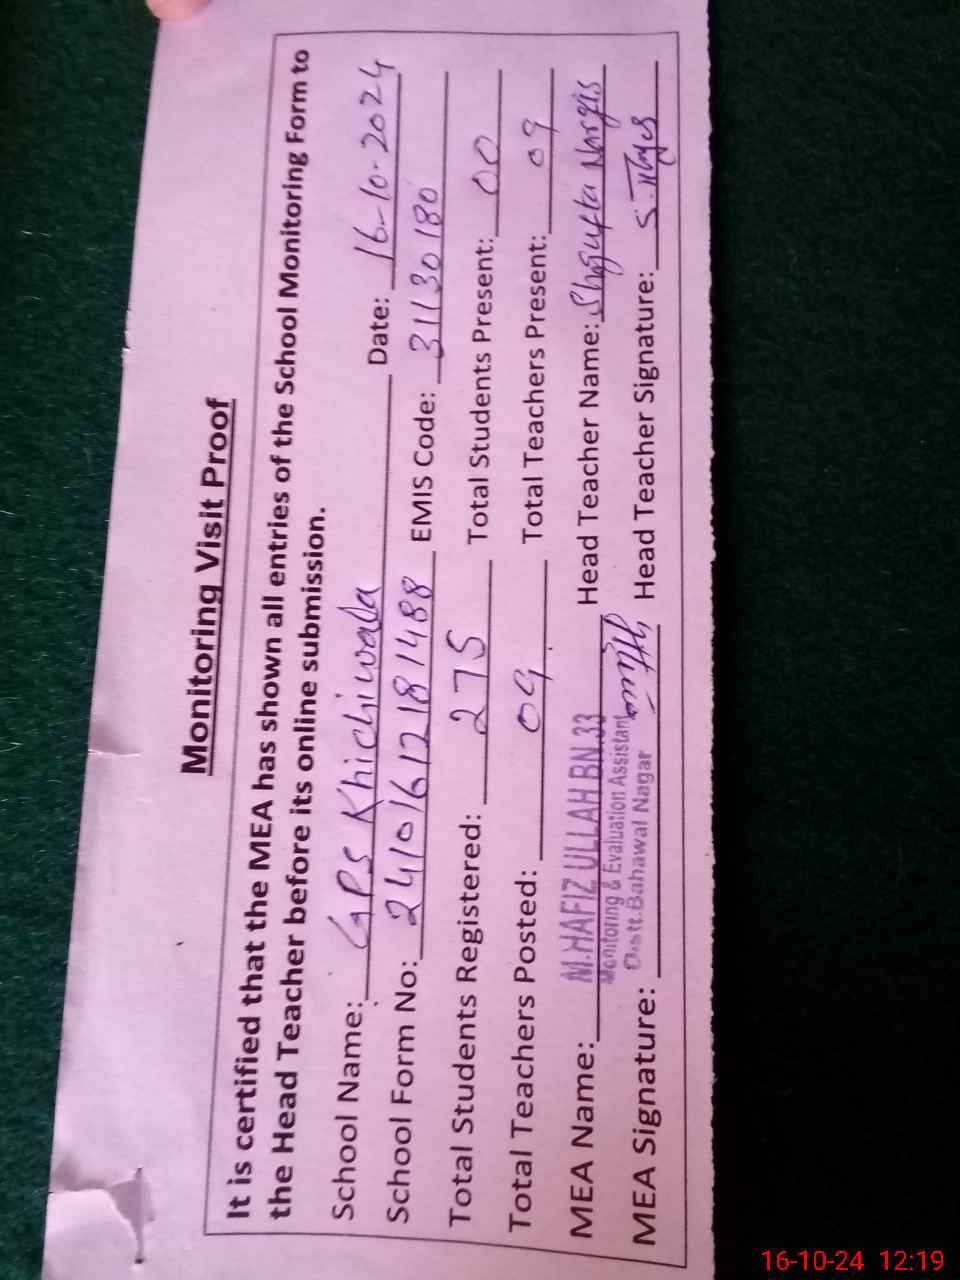 Monitoring Visit Proof
It is certified that the MEA has shown all entries of the School Monitoring Form to
the Head Teacher before its online submission.
School Name: GPS Khichiwala Date: 16-10-2024
School Form No: 24101612181488 EMIS Code: 31130180
Total Students Registered: 275 Total Students Present: 00
Total Teachers Posted: 09 Total Teachers Present: 09
MEA Name: M.HAFIZ ULLAH BN.33 Head Teacher Name: Shagufta Nargis
Monitoring & Evaluation Assistant
Distt.Bahawal Nagar
MEA Signature: Head Teacher Signature:
16-10-24 12:19